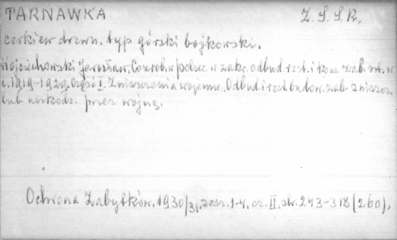 TARNAWKA Z.S.S.R.
cerkiew drewn. typ górski bojkowski.
Wojciechowski Jarosław. Co zrob. w Polsce w zakr. odbud. rest. i kons. zab. szt. w
l. 1919-1929. Część I. Zniszczenia wojenne. Odbud. i rest. budow. zab. zniszcz.
lub uszkodz. przez wojnę.
Ochrona Zabytków. 1930/31, zesz. 1-4, cz. II, str. 243-318 (260).